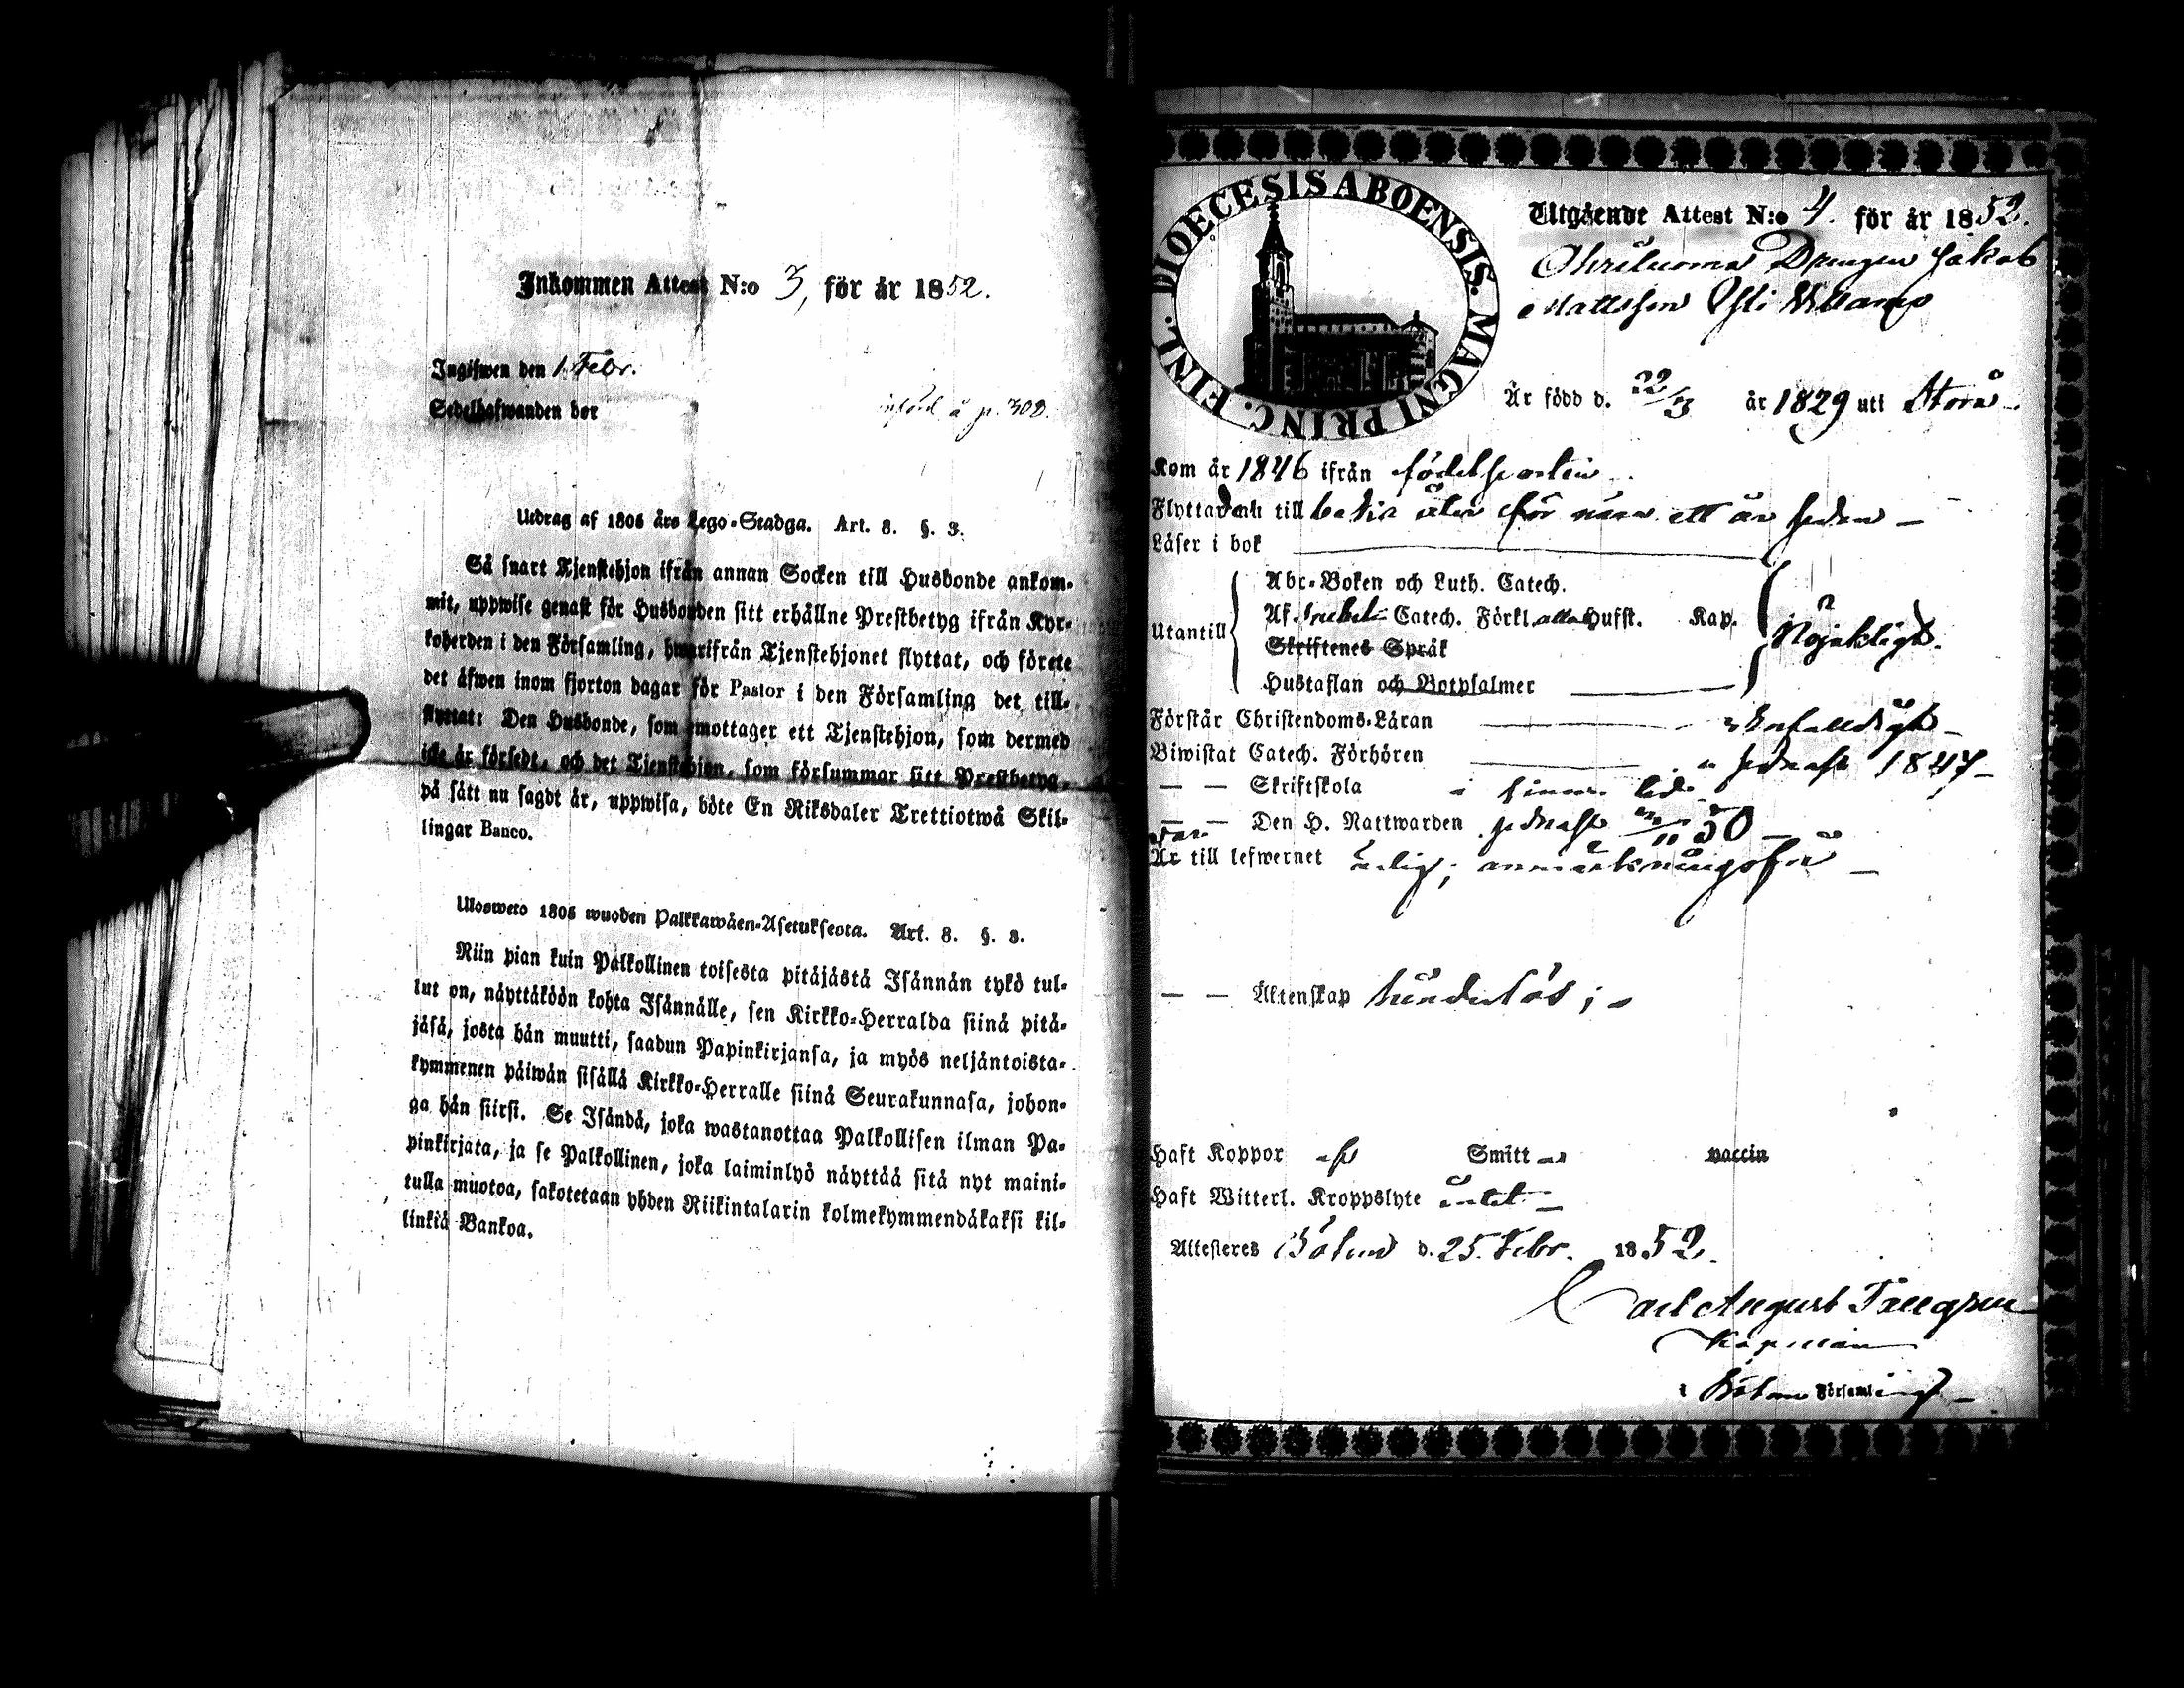 Inkommen Attest N:o 3, för år 1852.
Ingifwen den 1 Febr.
Sedelhafwanden bor
införd å p. 308.
Utdrag af 1805 års Lego-Stadga. Art. 8. §. 3.
Så snart Tjenstehjon ifrån annan Socken till Husbonde ankom-
mit, uppwise genast för Husbonden sitt erhållne Prestbetyg ifrån Kyr-
koherden i den Församling, hwarifrån Tjenstehjonet flyttat, och förete
det äfwen inom fjorton dagar för Pastor i den Församling det till-
flyttat: Den Husbonde, som emottager ett Tjenstehjon, som dermed
icke är försedt, och det Tjenstehjon, som försummar sitt Prestbetyg,
på sätt nu sagdt är, uppwisa, böte En Riksdaler Trettiotwå Skil-
lingar Banco.
Ulosweto 1805 wuoden Palkkawäen-Asetuksesta. Art. 8. §. 3.
Niin pian kuin Palkollinen toisesta pitäjästä Isännän tykö tul-
lut on, näyttäköön kohta Isännälle, sen Kirkko-Herralda siinä pitä-
jäsä, josta hän muutti, saadun Papinkirjansa, ja myös neljäntoista-
kymmenen päiwän sisällä Kirkko-Herralle siinä Seurakunnasa, johon-
ga hän siirsi. Se Isändä, joka wastanottaa Palkollisen ilman Pa-
pinkirjata, ja se Palkollinen, joka laiminlyö näyttää sitä nyt maini-
tulla muotoa, sakotetaan yhden Riikintalarin kolmekymmendäkaksi kil-
linkiä Bankoa.
DIOECESIS ABOENSIS. MAGNI PRINC. FINL.
Utgående Attest N:o 4. för år 1852.
Drengen Jakob
Mattsson
Är född d. 22/3 år 1829 uti Storå
Kom år 1846 ifrån födelseorten
Flyttade till för nära ett år sedan
Läser i bok
Utantill
Abc-Boken och Luth. Catech.
Af Catech. Förkl. alla Hufst. Kap.
Skriftenes Språk
Hustaflan och Botpsalmer
Nöjaktligt.
Förstår Christendoms-Läran
Biwistat Catech. Förhören sednast 1847
— — Skriftskola i sinom tid
— — Den H. Nattwarden sednast 50
Är till lefwernet ärlig; anmärkningsfri
— — Äktenskap hinderlös;
Haft Koppor Smitt vaccin
Haft Witterl. Kroppslyte intet
Attesteres Bötom d. 25. Febr. 1852.
Carl August
Kapellan
i Bötom Församling